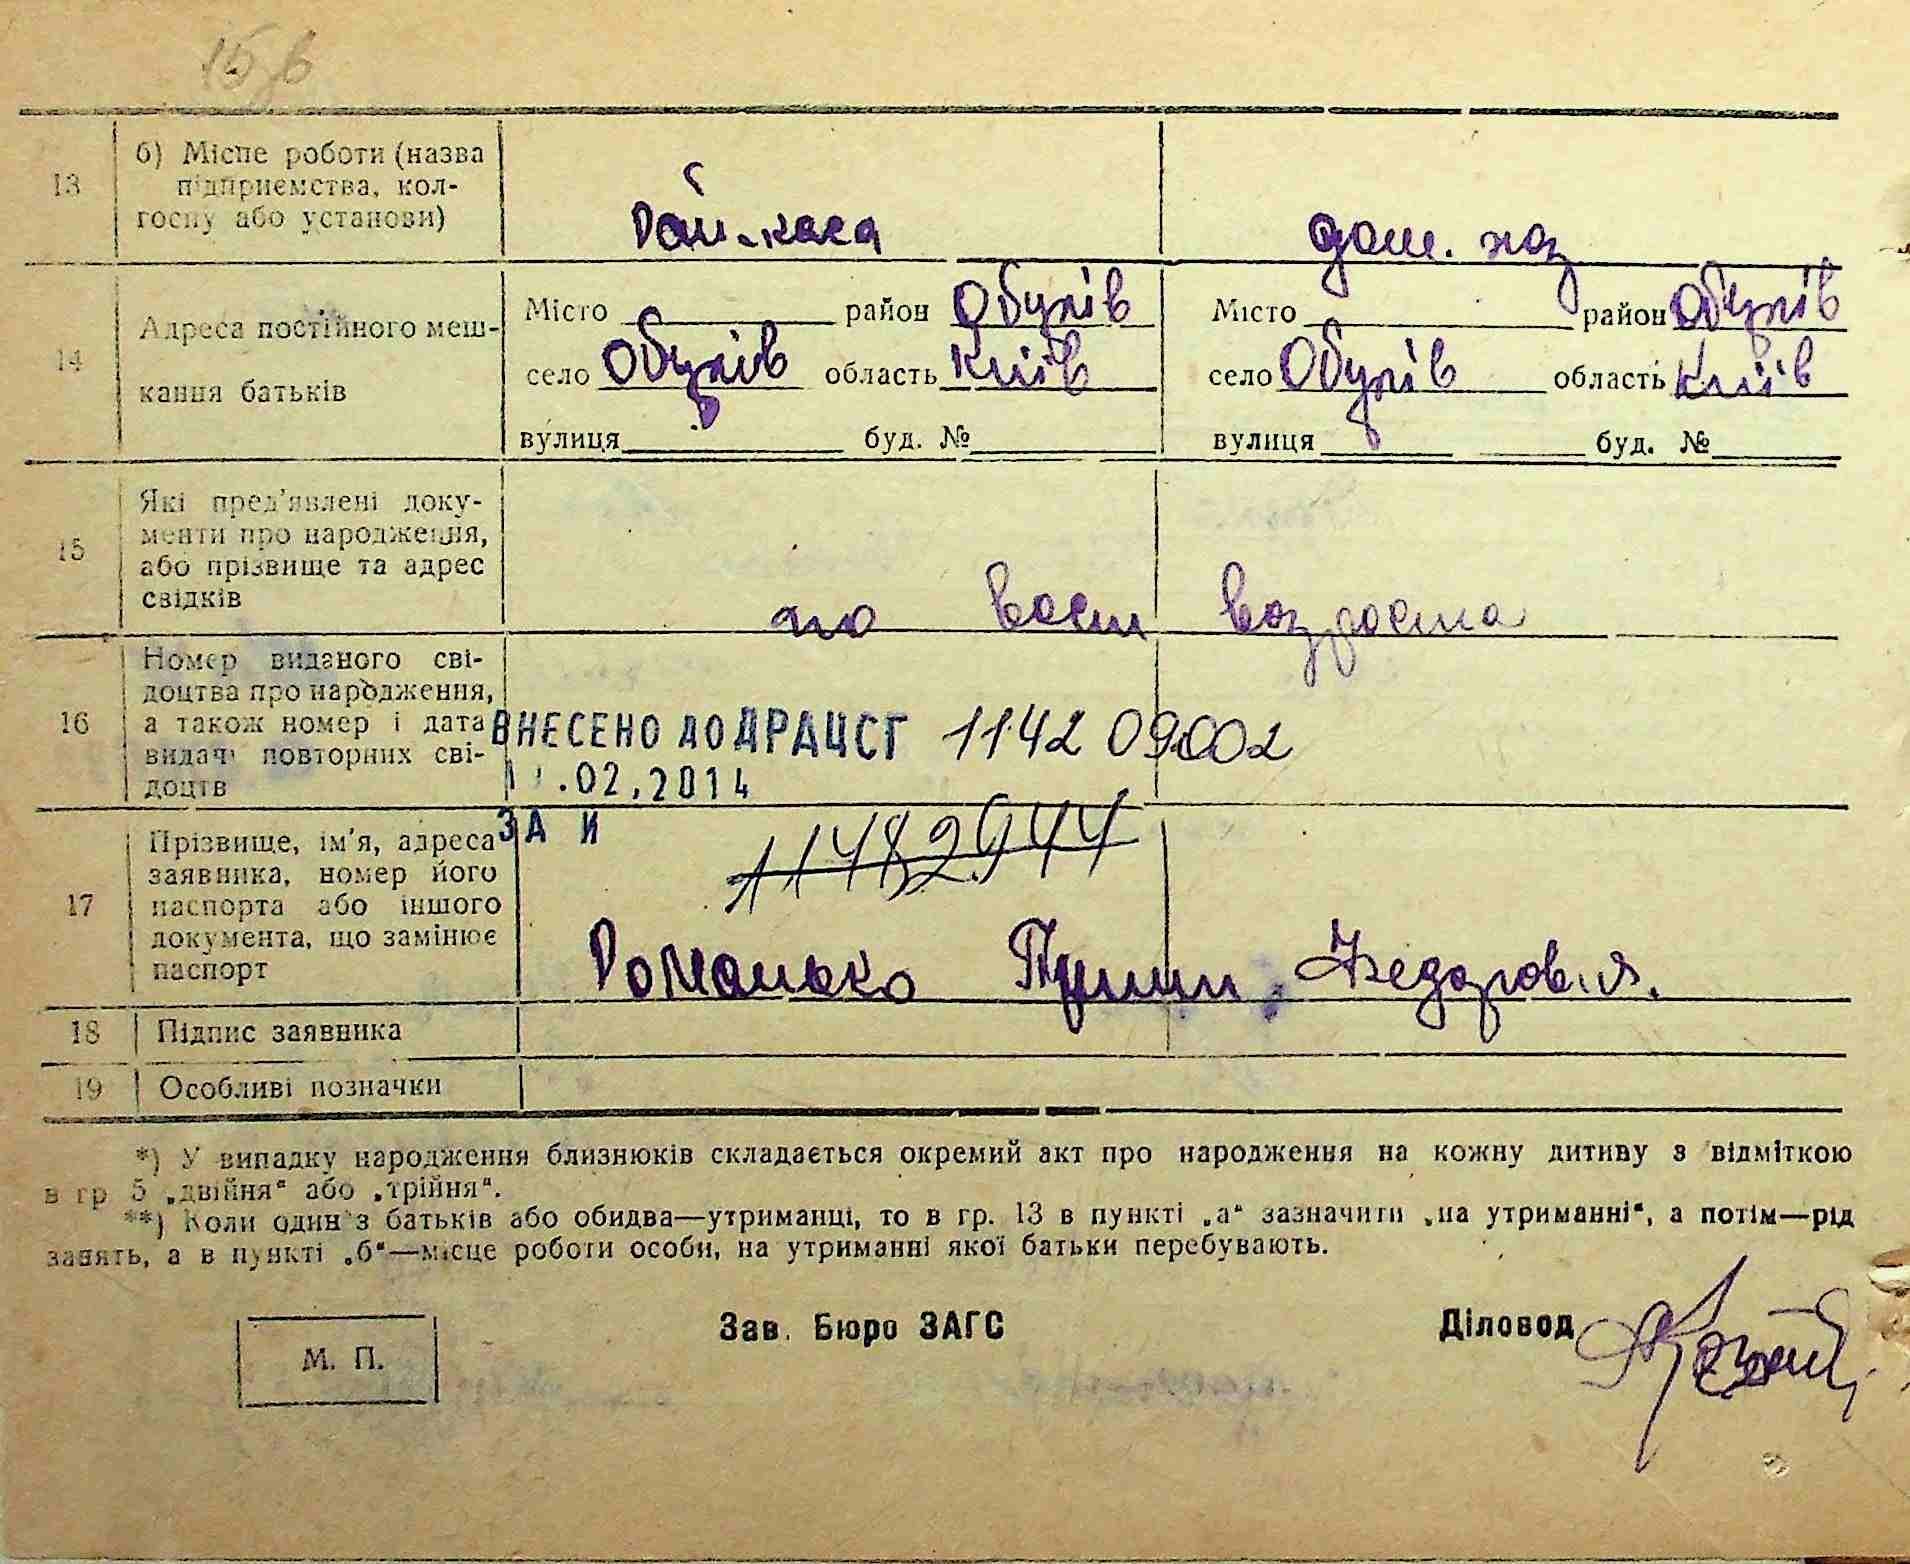 13 б) Місце роботи (назва підприємства, колгоспу або установи) Рай-каса дом. хоз
14 Адреса постійного мешкання батьків
Місто район Обухів Місто район Обухів
село Обухів область Київ село Обухів область Київ
вулиця буд. № вулиця буд. №
15 Які пред'явлені документи про народження, або прізвище та адрес свідків
по возраста
16 Номер виданого свідоцтва про народження, а також номер і дата видачі повторних свідоцтв
ВНЕСЕНО ДО ДРАЦСГ 1142 09002
.02.2014
ЗА И
17 Прізвище, ім'я, адреса заявника, номер його паспорта або іншого документа, що замінює паспорт
Романько Федоров.
18 Підпис заявника
19 Особливі позначки
*) У випадку народження близнюків складається окремий акт про народження на кожну дитину з відміткою
в гр 5 „двійня" або „трійня".
**) Коли один з батьків або обидва—утриманці, то в гр. 13 в пункті „а" зазначити „на утриманні", а потім—рід
занять, а в пункті „б"—місце роботи особи, на утриманні якої батьки перебувають.
М. П. Зав. Бюро ЗАГС Діловод